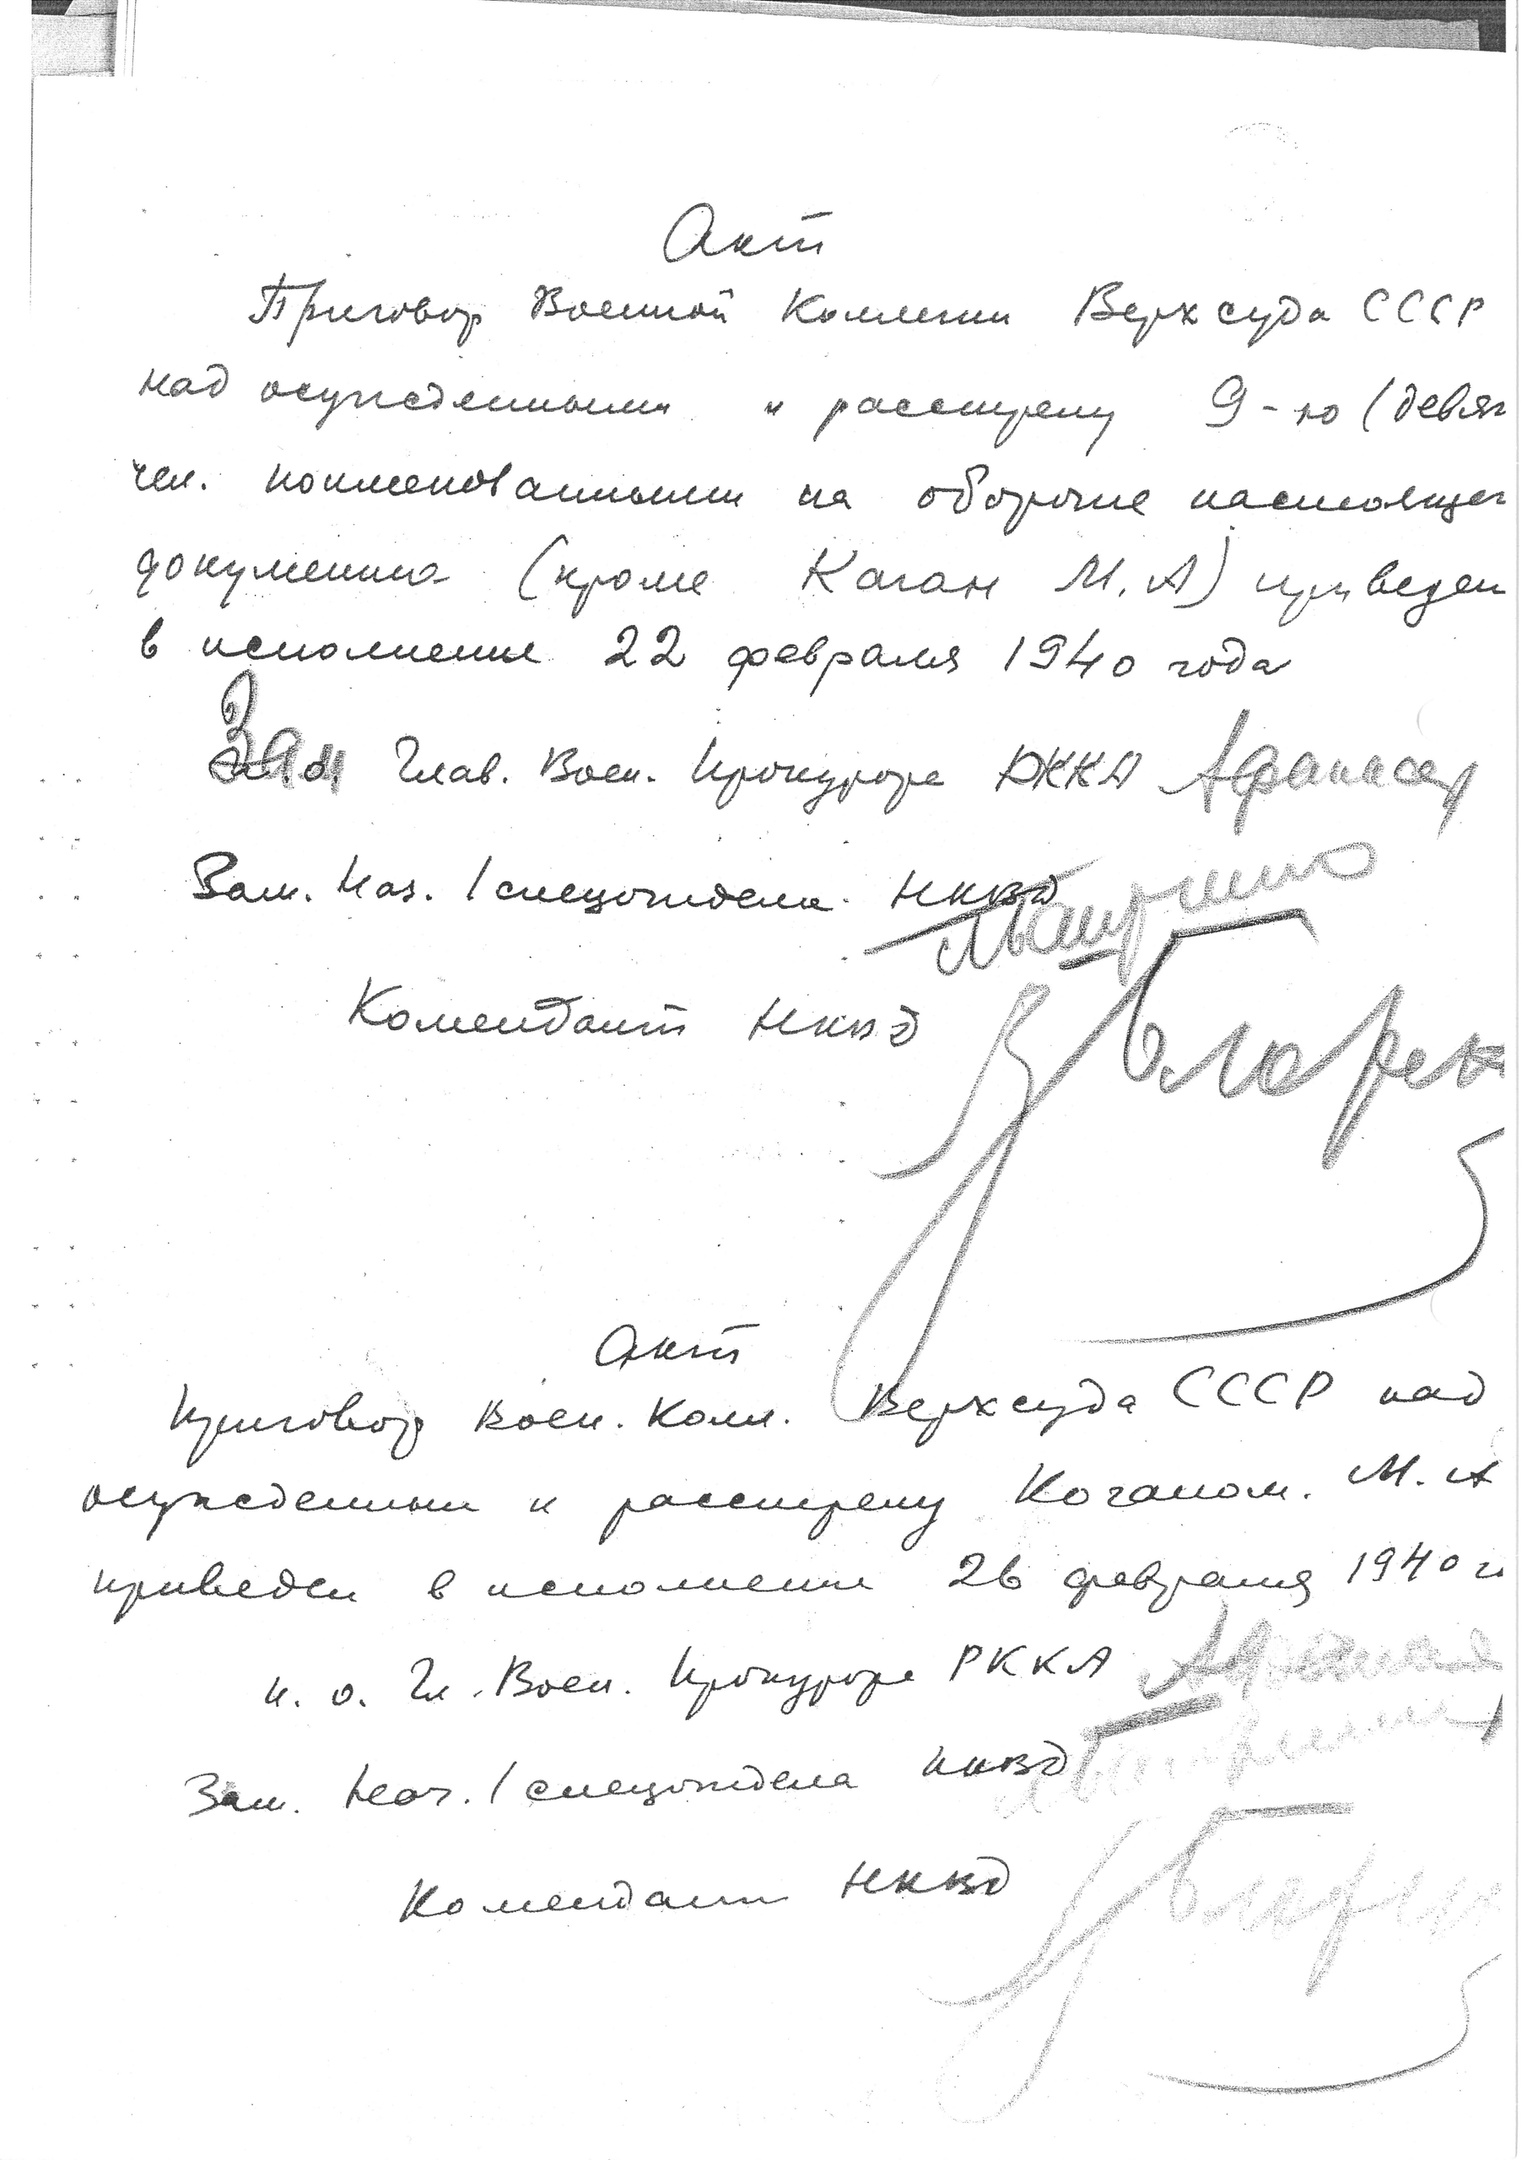 Акт
Приговор Военной Коллегии Верхсуда СССР
над осужденными к расстрелу 9-ю (девят
чел. поименованными на обороте настоящег
документа (кроме Каган М.А) приведен
в исполнение 22 февраля 1940 года
Зам Глав. Воен. Прокурора РККА Афанасьев
Зам. Нач. 1 спецотдела НКВД
Комендант НКВД Блохин
Акт
Приговор Воен. Колл. Верхсуда СССР над
осужденным к расстрелу Коганом. М. А
приведен в исполнение 26 февраля 1940 г.
и. о. Гл. Воен. Прокурора РККА
Зам. Нач. 1 спецотдела НКВД
Комендант НКВД